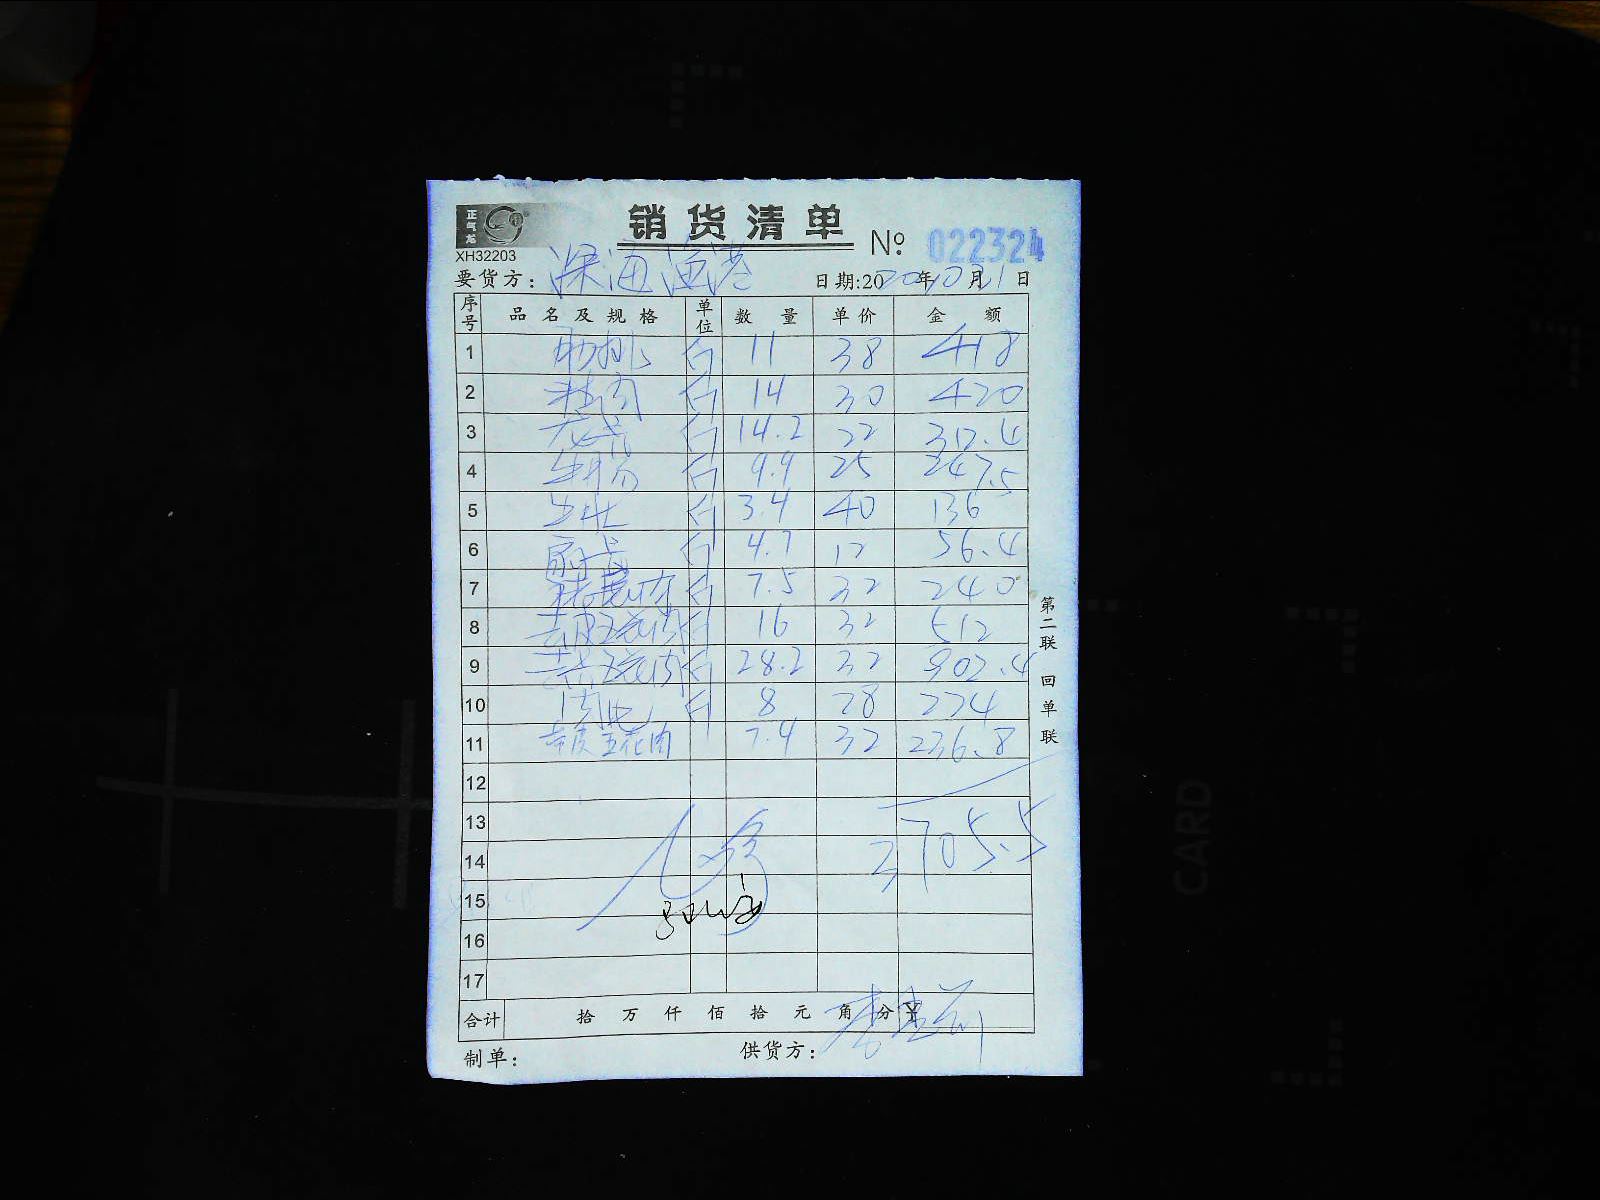 正气龙
销货清单
№ 022324
XH32203
要货方：深海渔港 日期:2020年10月21日
序号 品名及规格 单位 数量 单价 金额
1 肋排 斤 11 38 418
2 精肉 斤 14 30 420
3 斤 14.2 22 312.4
4 斤 9.9 25 247.5
5 斤 3.4 40 136
6 斤 4.7 12 56.4
7 斤 7.5 32 240
8 去皮五花肉 斤 16 32 512
9 五花肉 斤 28.2 32 902.4
10 斤 8 28 224
11 去皮五花肉 7.4 32 236.8
12
13
14 3705.5
15
16
17
合计 拾 万 仟 佰 拾 元 角 分 ¥
制单： 供货方：
第二联 回单联
CARD